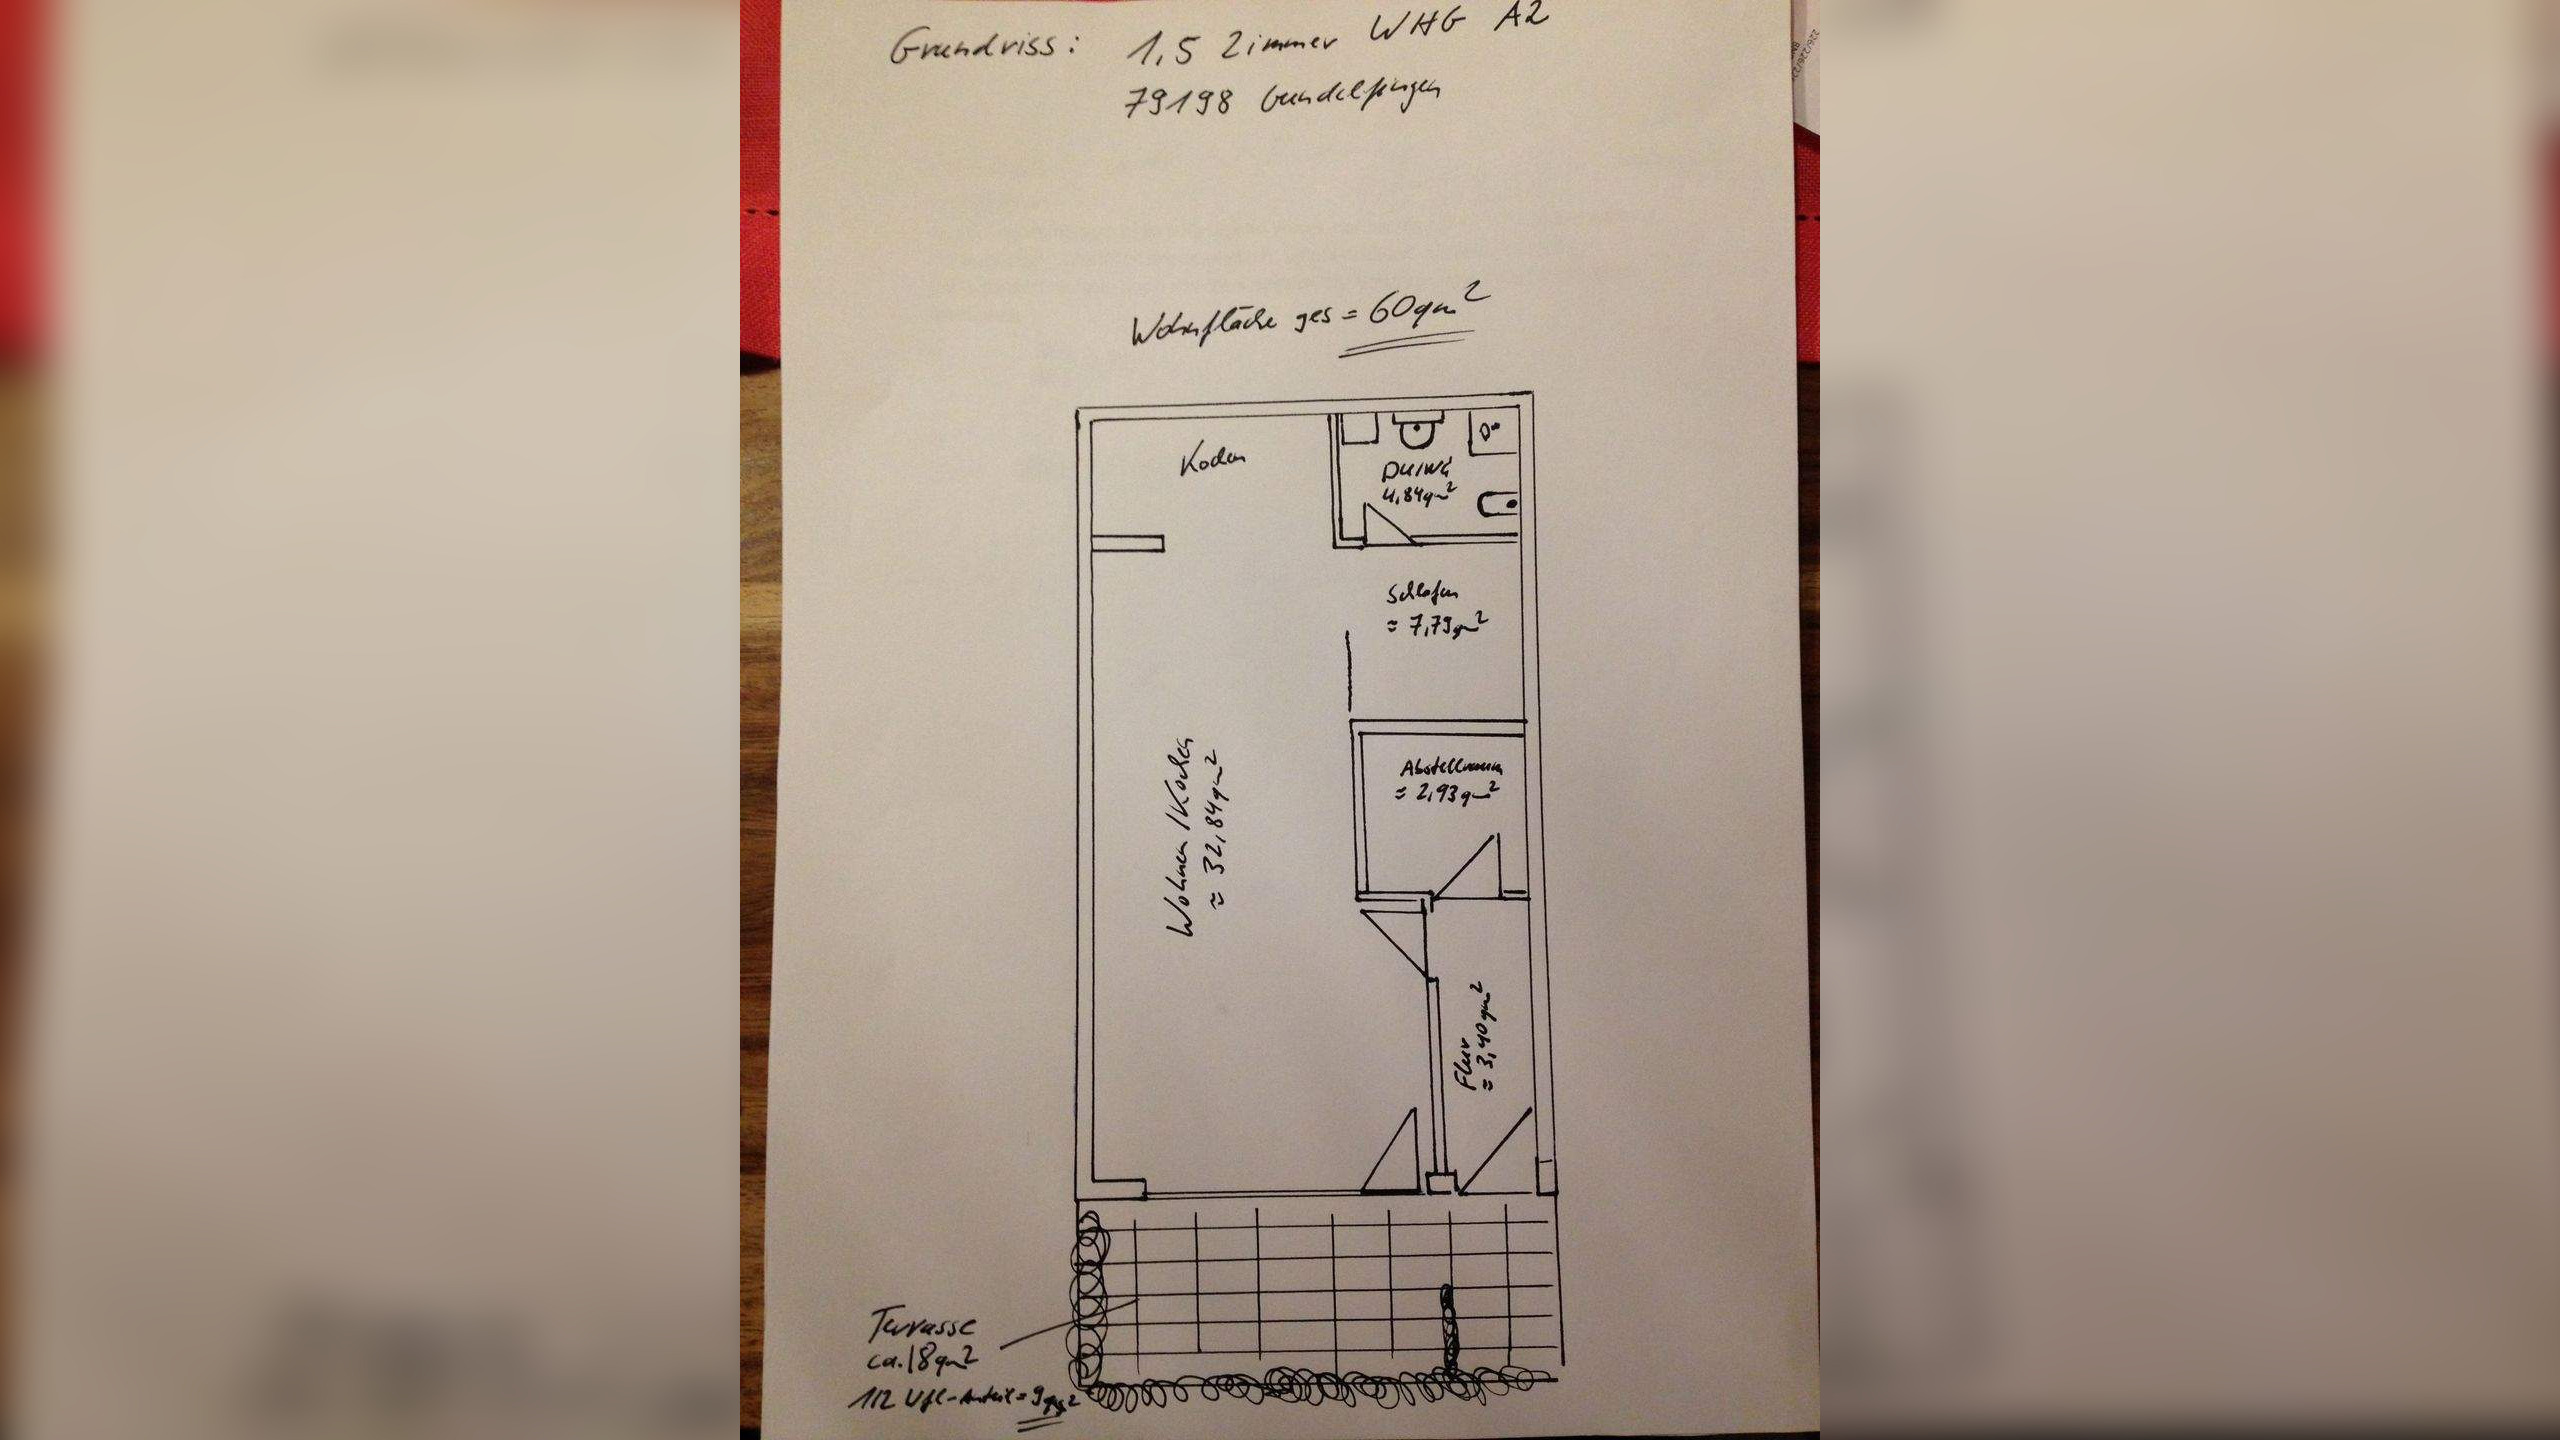 Grundriss: 1,5 Zimmer WHG A2
79198 Gundelfingen
Wohnfläche ges = 60qm²
Kochen
DU/WC
4,84qm²
Schlafen
≈ 7,79qm²
Abstellraum
≈ 2,93qm²
Wohnen/Kochen
≈ 32,84qm²
Flur
≈ 3,40qm²
Terrasse
ca. 18qm²
1/2 Wfl-Anteil = 9qm²